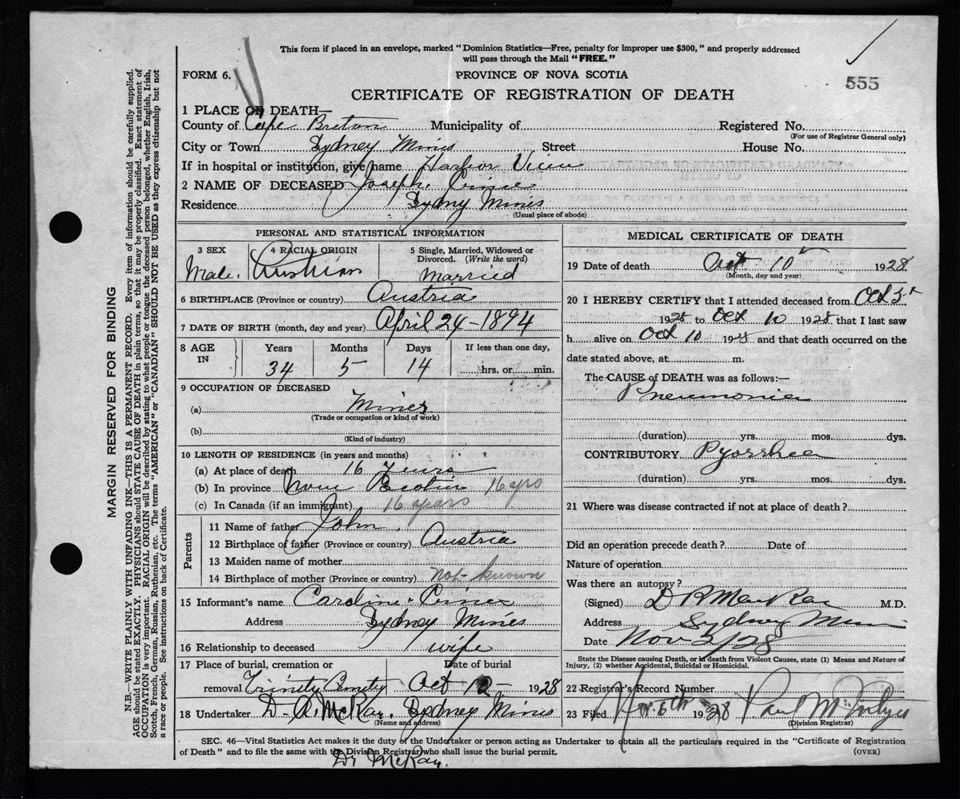 This form if placed in an envelope, marked "Dominion Statistics—Free, penalty for improper use $300," and properly addressed
will pass through the Mail "FREE."
FORM 6.
PROVINCE OF NOVA SCOTIA
555
CERTIFICATE OF REGISTRATION OF DEATH
1 PLACE OF DEATH—
County of Cape Breton Municipality of Registered No.
(For use of Registrar General only)
City or Town Sydney Mines Street House No.
If in hospital or institution, give name Harbor View
2 NAME OF DECEASED Joseph
Residence Sydney Mines
(Usual place of abode)
PERSONAL AND STATISTICAL INFORMATION
3 SEX 4 RACIAL ORIGIN 5 Single, Married, Widowed or
Divorced. (Write the word)
Male. Austrian Married
6 BIRTHPLACE (Province or country) Austria
7 DATE OF BIRTH (month, day and year) April 24-1894
8 AGE IN Years Months Days If less than one day,
34 5 14 hrs. or min.
9 OCCUPATION OF DECEASED
(a) Miner
(Trade or occupation or kind of work)
(b)
(Kind of industry)
10 LENGTH OF RESIDENCE (in years and months)
(a) At place of death 16 Years
(b) In province Nova Scotia 16 yrs
(c) In Canada (if an immigrant) 16 years
Parents
11 Name of father John
12 Birthplace of father (Province or country) Austria
13 Maiden name of mother
14 Birthplace of mother (Province or country) Not known
15 Informant's name Caroline
Address Sydney Mines
16 Relationship to deceased wife
17 Place of burial, cremation or Date of burial
removal Trinity Cemetry Oct 12 - 1928
18 Undertaker D. A. McKay. Sydney Mines
(Name and address)
MEDICAL CERTIFICATE OF DEATH
19 Date of death Oct 10 1928
(Month, day and year)
20 I HEREBY CERTIFY that I attended deceased from Oct 5
1928 to Oct 10 1928 that I last saw
h alive on Oct 10 1928 and that death occurred on the
date stated above, at m.
The CAUSE of DEATH was as follows:—
Pneumonia
(duration) yrs. mos. dys.
CONTRIBUTORY Pyorrhea
(duration) yrs. mos. dys.
21 Where was disease contracted if not at place of death?
Did an operation precede death? Date of
Nature of operation
Was there an autopsy?
(Signed) D R MacRae M.D.
Address Sydney Mines
Date Nov 2/28
State the Disease causing Death, or in death from Violent Causes, state (1) Means and Nature of
Injury, (2) whether Accidental, Suicidal or Homicidal.
22 Registrar's Record Number
23 Filed Nov. 6th 1928 Paul McIntyre
(Division Registrar)
SEC. 46—Vital Statistics Act makes it the duty of the Undertaker or person acting as Undertaker to obtain all the particulars required in the "Certificate of Registration
of Death" and to file the same with the Division Registrar who shall issue the burial permit. (OVER)
Dr McKay.
MARGIN RESERVED FOR BINDING
N.B.—WRITE PLAINLY WITH UNFADING INK—THIS IS A PERMANENT RECORD. Every item of information should be carefully supplied.
AGE should be stated EXACTLY. PHYSICIANS should STATE CAUSE OF DEATH in plain terms, so that it may be properly classified. Exact statement of
OCCUPATION is very important. RACIAL ORIGIN will be described by stating to what people or tongue the deceased person belonged, whether English, Irish,
Scotch, French, German, Russian, Ruthenian, etc. The terms "AMERICAN" or "CANADIAN" SHOULD NOT BE USED as they express citizenship but not
a race or people. See instructions on back of Certificate.